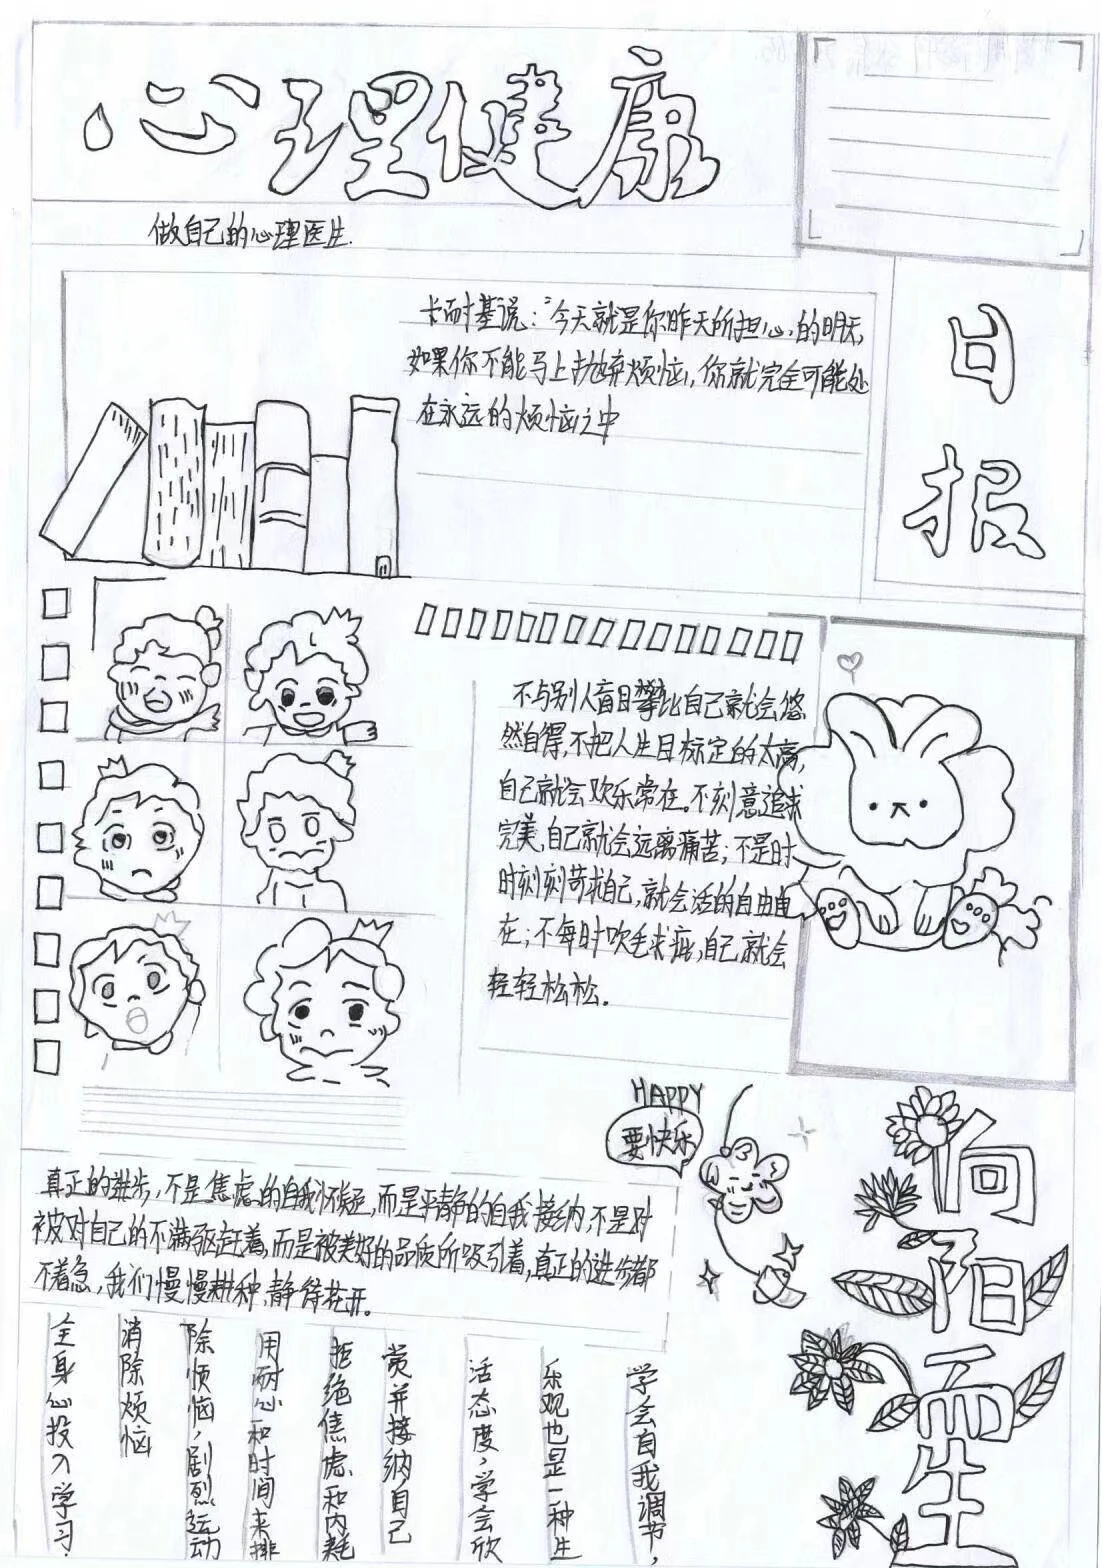 心理健康
日报
做自己的心理医生.
卡耐基说："今天就是你昨天所担心的明天,
如果你不能马上抛弃烦恼,你就完全可能处
在永远的烦恼之中
不与别人盲目攀比自己就会悠
然自得,不把人生目标定的太高,
自己就会欢乐常在。不刻意追求
完美,自己就会远离痛苦;不是时
时刻刻苛求自己,就会活的自由自
在;不每时吹毛求疵,自己就会
轻轻松松。
HAPPY
要快乐
真正的进步,不是焦虑的自我怀疑,而是平静的自我接纳,不是对
被对自己的不满驱赶着,而是被美好的品质所吸引着,真正的进步都
不着急,我们慢慢耕种,静待花开。
学会自我调节,
乐观也是一种生
活态度,学会欣
赏并接纳自己
拒绝焦虑和内耗
用耐心和时间来排
除烦恼,剧烈运动
消除烦恼
全身心投入学习.
向阳而生